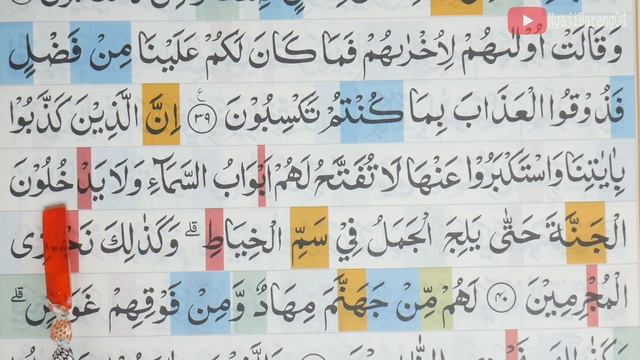 NgajiBareng04
وَقَالَتْ اُوْلٰىهُمْ لِاُخْرٰىهُمْ فَمَا كَانَ لَكُمْ عَلَيْنَا مِنْ فَضْلٍ
فَذُوْقُوا الْعَذَابَ بِمَا كُنْتُمْ تَكْسِبُوْنَ ࣖ ٣٩ اِنَّ الَّذِيْنَ كَذَّبُوْا
بِاٰيٰتِنَا وَاسْتَكْبَرُوْا عَنْهَا لَا تُفَتَّحُ لَهُمْ اَبْوَابُ السَّمَاۤءِ وَلَا يَدْخُلُوْنَ
الْجَنَّةَ حَتّٰى يَلِجَ الْجَمَلُ فِيْ سَمِّ الْخِيَاطِ ۗ وَكَذٰلِكَ نَجْزِى
الْمُجْرِمِيْنَ ٤٠ لَهُمْ مِّنْ جَهَنَّمَ مِهَادٌ وَّمِنْ فَوْقِهِمْ غَوَاشٍ ۗ